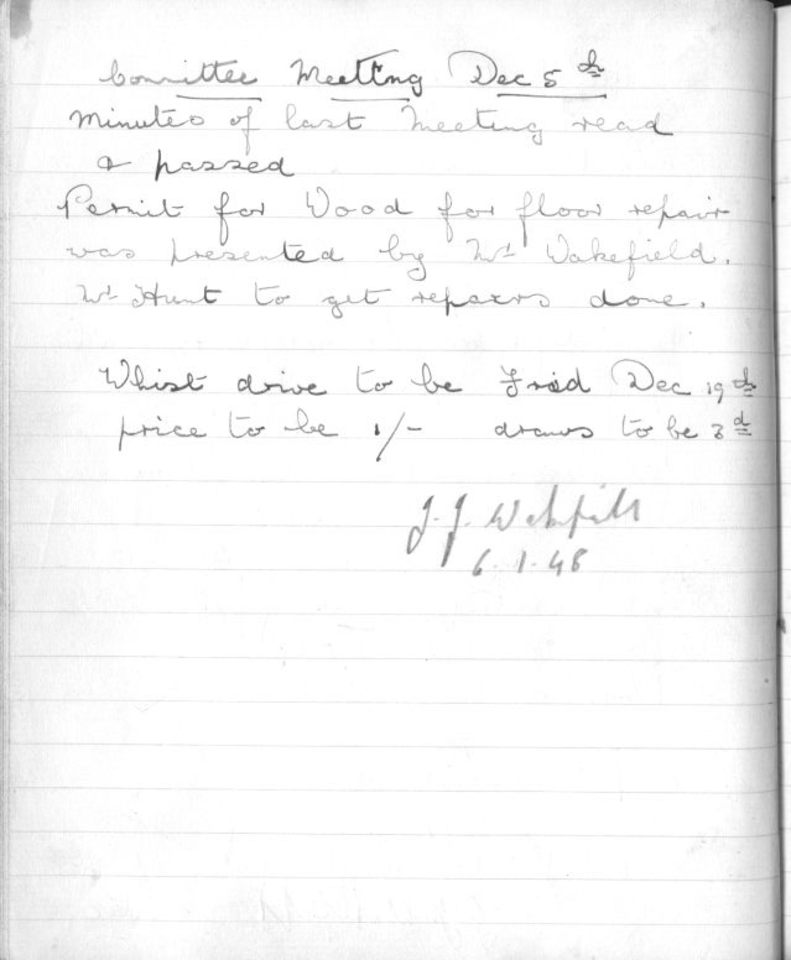 Committee Meeting Dec 5th
Minutes of last Meeting read
& passed
Permit for Wood for floor repair
was presented by Mr Wakefield.
Mr Hunt to get repairs done.
Whist drive to be Frid Dec 19th
price to be 1/- draws to be 3d
J. J. Wakefield
6.1.48